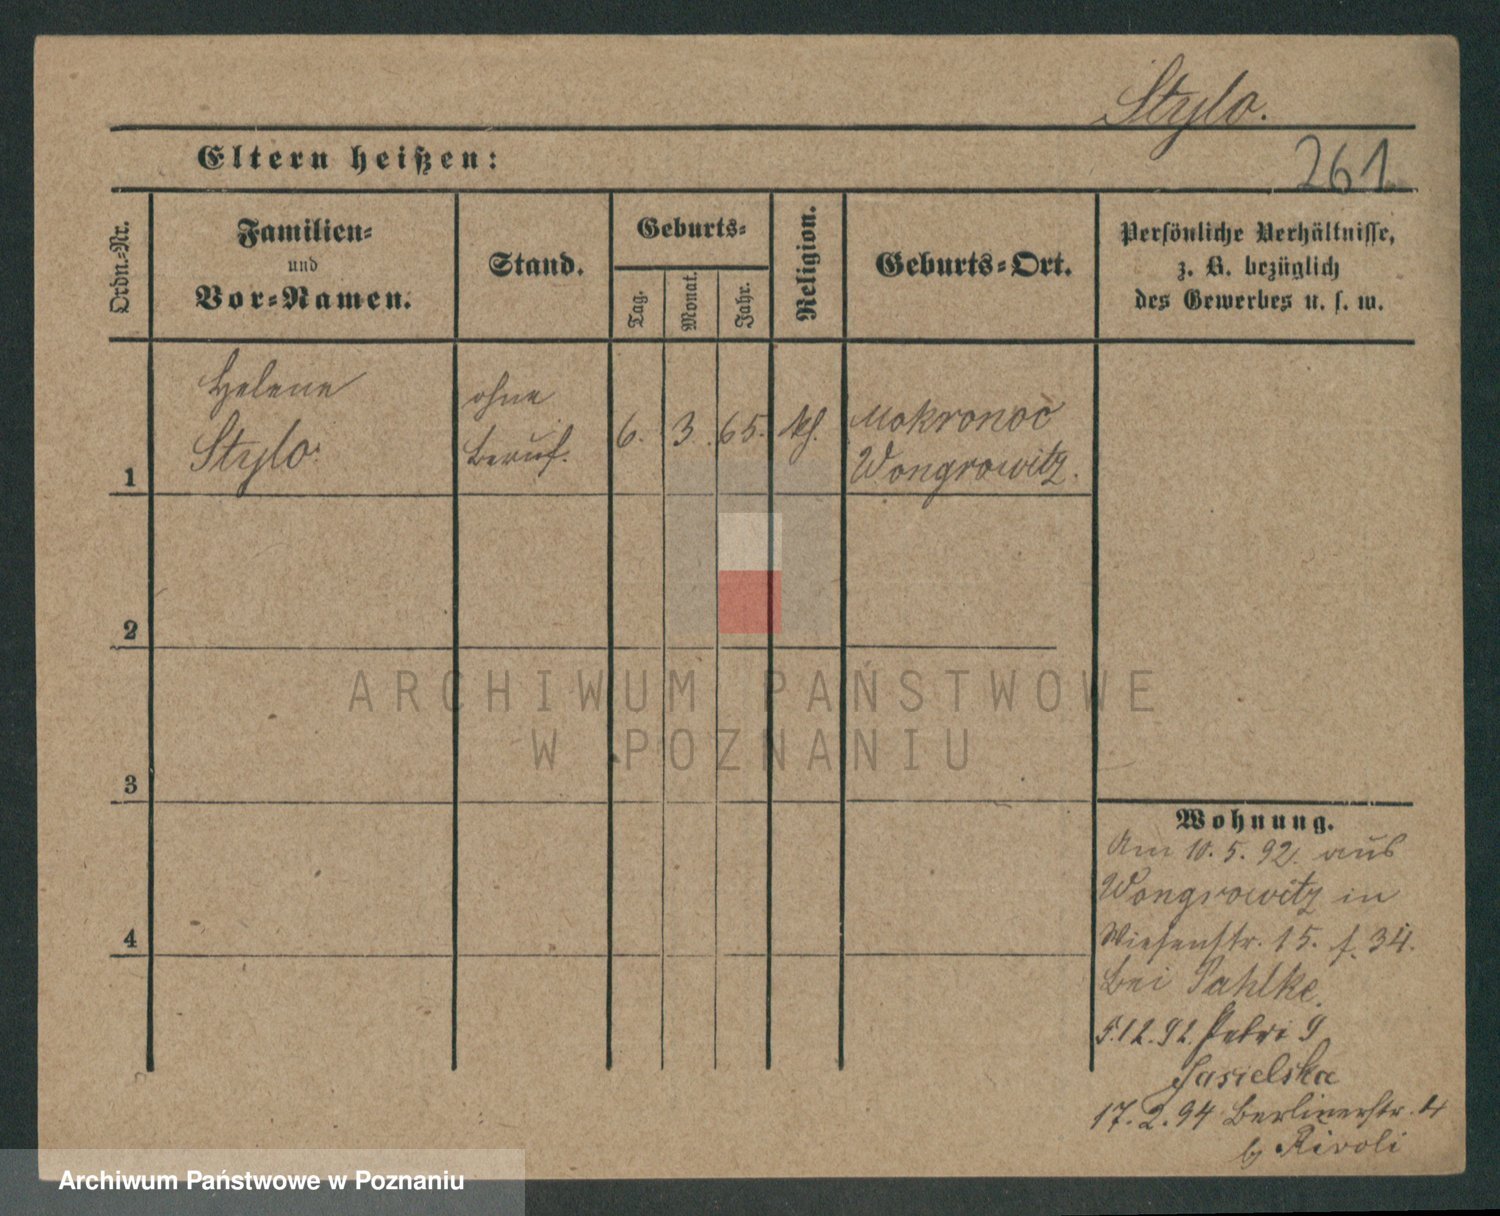 Stylo.
Eltern heißen:
261
Ordn.-Nr.
Familien-
und
Vor-Namen.
Stand.
Geburts-
Tag.
Monat.
Jahr.
Religion.
Geburts-Ort.
Persönliche Verhältnisse,
z. B. bezüglich
des Gewerbes u. s. w.
Helene
Stylo
ohne
Beruf.
6. 3. 65. kh.
Mokronoć
Wongrowitz.
1
2
3
4
Wohnung.
Am 10. 5. 92. aus
Wongrowitz in
Wiesenstr. 15. f. 34.
bei Pahlke.
5.12.92. Petri 9
Jasielska
17.2.94 Berlinerstr. 4
b Rivoli
ARCHIWUM PAŃSTWOWE
W POZNANIU
Archiwum Państwowe w Poznaniu